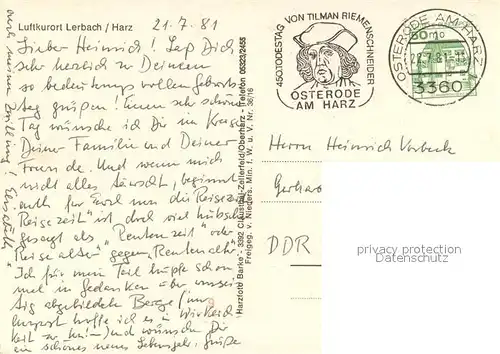 Luftkurort Lerbach / Harz
21.7.81
Lieber Heinrich! Laß Dich
sehr herzlich zu Deinem
so bedeutungsvollen Geburts-
tag grüßen! Einen sehr schönen
Tag wünsche ich Dir im Kreise
Deiner Familie und Deiner
Freunde. Und wenn mich
nicht alles täuscht, beginnt
auch für Euch nun die Reisezeit
"Reisezeit" ist doch viel hübscher
gesagt als "Rentenzeit" oder
"Reisealter" gegen "Rentenalter".
Ich für mein Teil hüpfe schon
mal in Gedanken über unsei-
tig abgebildete Berge (im
hoffe ich es in Wirklich-
keit zu tun!) und wünsche Dir
ein schönes neues Lebensjahr, Grüße
auch meinen Zwilling! Elisabeth
Harzfoto Barke - 3392 Clausthal-Zellerfeld/Oberharz - Telefon 05323/2455
Freigeg. v. Nieders. Min. f. W. u. V. Nr. 36/16
450. TODESTAG VON TILMAN RIEMENSCHNEIDER
OSTERODE
AM HARZ
OSTERODE AM HARZ
3360
60
Herrn Heinrich Vorbeck
DDR
privacy protection
for cardowners